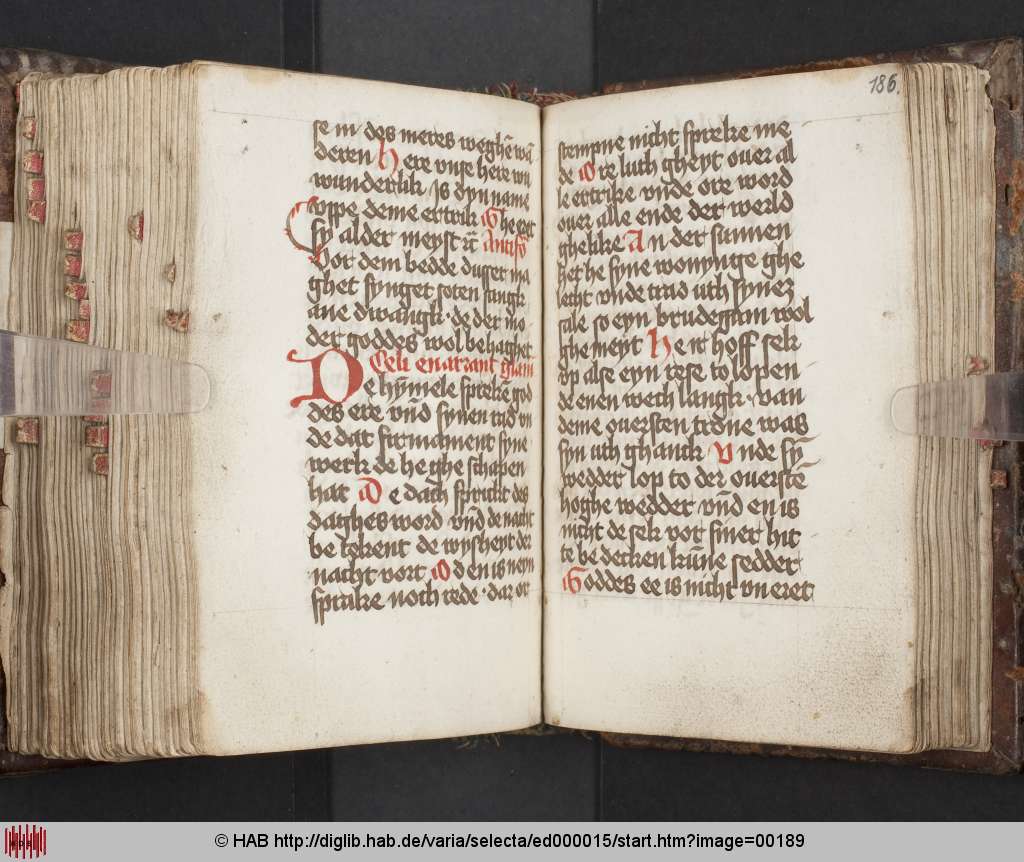 se in des meres weghē wā
deren Here vnse here wu
wunderlik is dyn name
vppe deme ertrik Ghe eret
sy alder meyst rē Antifō
Vor dem bedde duſſer ma
ghet synget soten sangk
ane dwangk · de der mo
der goddes wol behaghet
Celi enarrant gl'iam
De hȳmele sprekē god
des ere vnd synen rad vn
de dat firmament syne
werk de he ghe schapen
hat De dach sprikt des
daghes word vnd de nacht
be tekent de wysheyt der
nacht vort Od en is neyn
sprake noch rede · dar or
186.
stempne nicht spreke me
de Ore luth gheyt ouer al
le ertrike vnde ore word
ouer alle ende der werld
ghelike An der sunnen
het he syne wonynge ghe
lecht vnde trad vth synez
sale so eyn brudegam wol
ghe meyt He rt hoff sek
vp alse eyn rese to lopen
de enen wech langk · van
deme ouersten trone was
syn vth ghanck Vnde sȳ
wedder lop to der ouerstē
hoghe wedder vnd en is
nicht de sek vor siner hit
te be decken kūne sedder
Goddes ee is nicht vn eret
© HAB http://diglib.hab.de/varia/selecta/ed000015/start.htm?image=00189